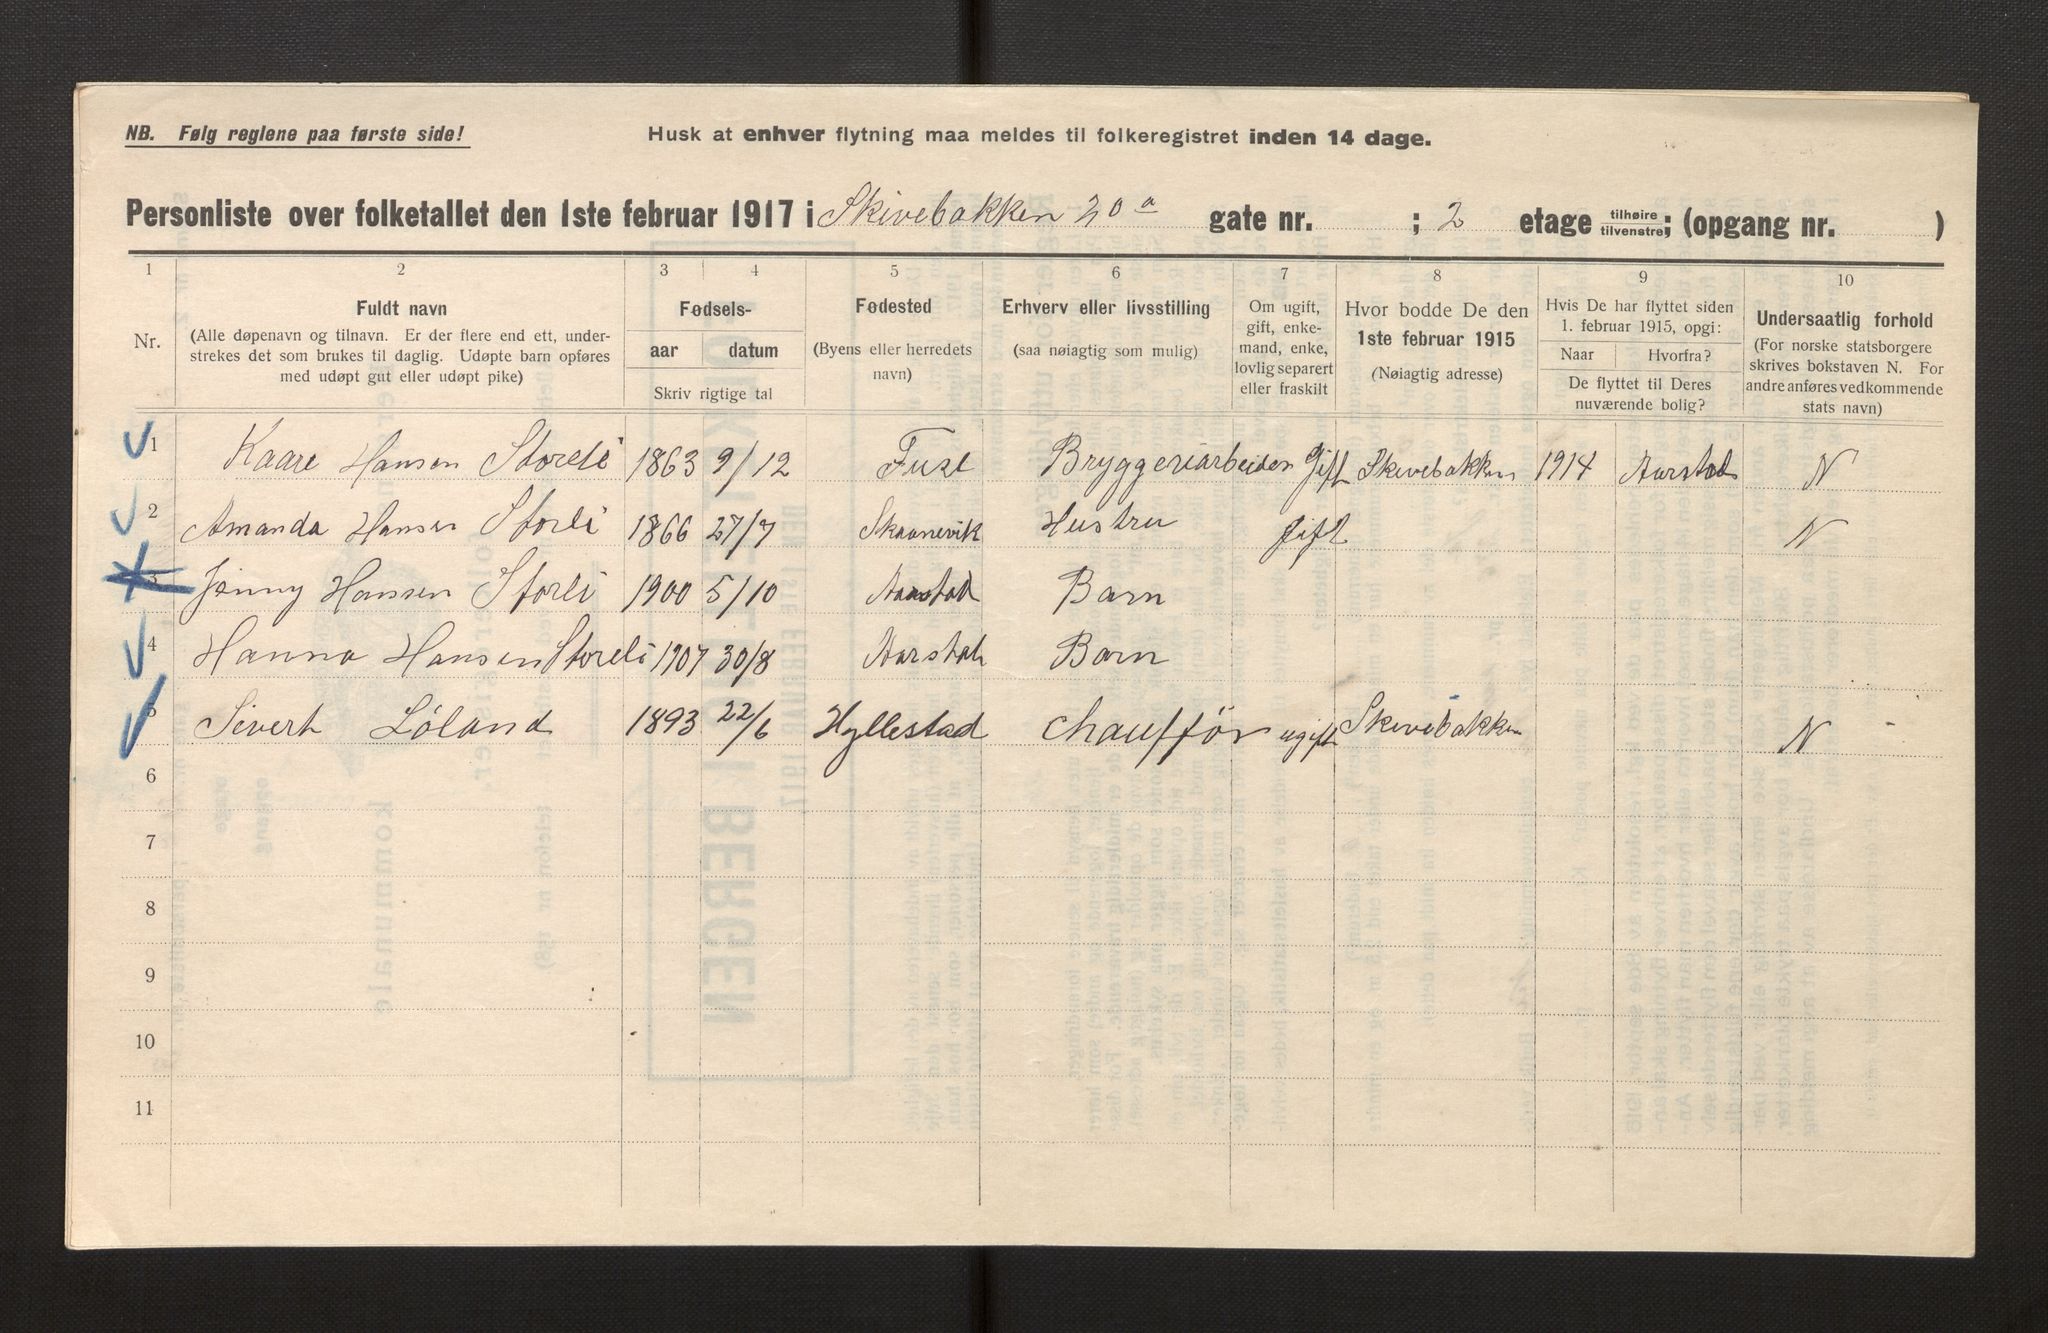 NB. Følg reglene paa første side!
Husk at enhver flytning maa meldes til folkeregistret inden 14 dage.
Personliste over folketallet den 1ste februar 1917 i Skivebakken 20 a gate nr. ; 2 etage tilhøire tilvenstre; (opgang nr. )
1 2 3 4 5 6 7 8 9 10
Nr.
Fuldt navn
(Alle døpenavn og tilnavn. Er der flere end ett, under-
strekes det som brukes til daglig. Udøpte barn opføres
med udøpt gut eller udøpt pike)
Fødsels-
aar datum
Skriv rigtige tal
Fødested
(Byens eller herredets
navn)
Erhverv eller livsstilling
(saa nøiagtig som mulig)
Om ugift,
gift, enke-
mand, enke,
lovlig separert
eller fraskilt
Hvor bodde De den
1ste februar 1915
(Nøiagtig adresse)
Hvis De har flyttet siden
1. februar 1915, opgi:
Naar Hvorfra?
De flyttet til Deres
nuværende bolig?
Undersaatlig forhold
(For norske statsborgere
skrives bokstaven N. For
andre anføres vedkommende
stats navn)
1 Kaare Hansen Storeli 1863 9/12 Fuse Bryggeriarbeider Gift Skivebakken 1914 Aarstad N
2 Amanda Hansen Storli 1866 27/7 Skaanevik Hustru gift N
3 Jenny Hansen Storli 1900 5/10 Aarstad Barn
4 Hanna Hansen Storeli 1907 30/8 Aarstad Barn
5 Sivert Løland 1893 22/6 Hyllestad Chauffør ugift Skivebakken N
6
7
8
9
10
11